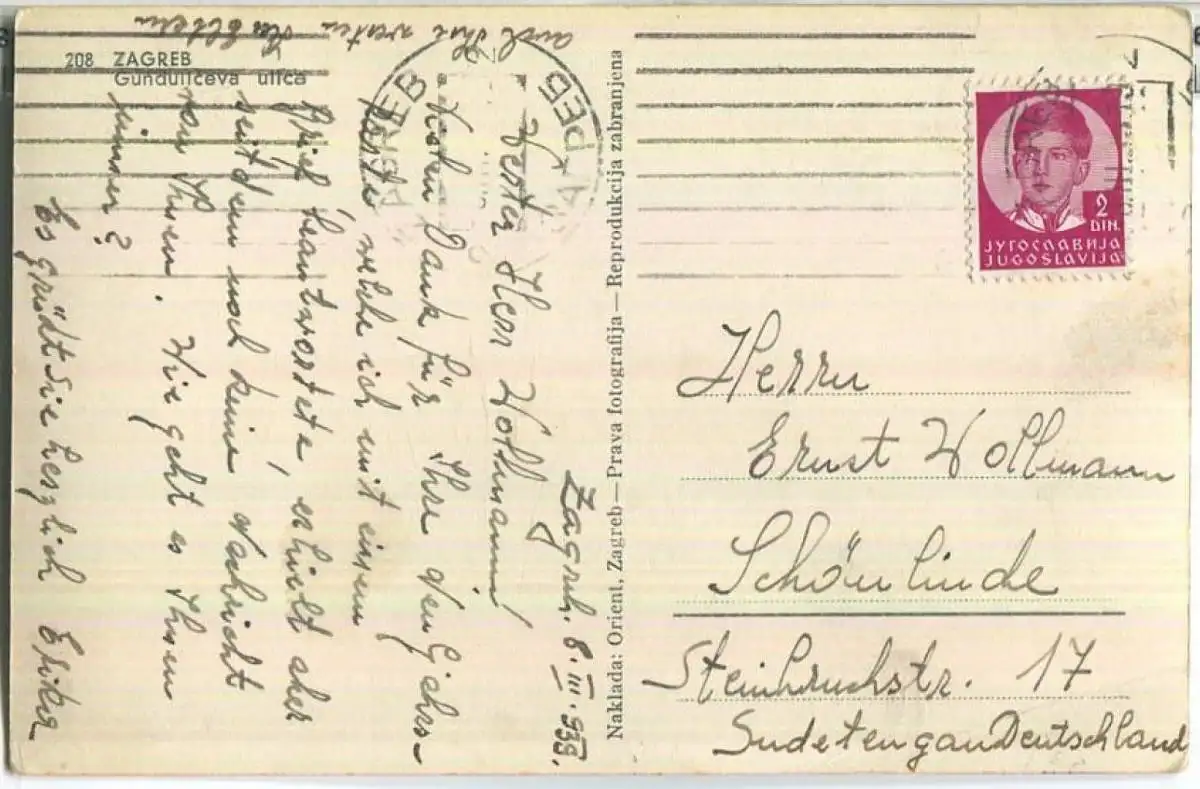 208 ZAGREB
Gundulićeva ulica
Zagreb. 8. III. 939.
Werter Herr Wollmann!
Vielen Dank für Ihre Neujahrs-
karte welche ich mit einem
Brief beantwortete, erhielt aber
seitdem noch keine Nachricht
von Ihnen. Wie geht es Ihnen
immer?
Es grüßt Sie herzlich Erika
auch Ihre werten Eltern
Naklada: Orient, Zagreb — Prava fotografija — Reprodukcija zabranjena
ZAGREB
ЗАГРЕБ
2
DIN.
ЈУГОСЛАВИЈА
JUGOSLAVIJA
Herrn
Ernst Wollmann
Schönlinde
Steinbruchstr. 17
Sudetengau Deutschland